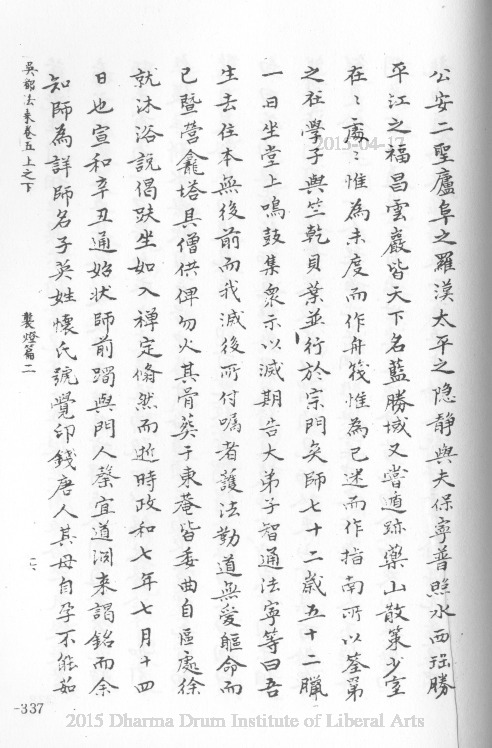 公安二聖廬阜之羅漢太平之隐靜與夫保寧普照水西瑞勝
平江之福昌雲巖皆天下名藍勝域又嘗遁跡藥山散策少室
在〻處〻惟為未度而作舟筏惟為已迷而作指南所以筌第
之在學子與竺乾貝葉並行於宗門矣師七十二歲五十二臘
一日坐堂上鳴鼓集衆示以滅期告大弟子智通法寧等曰吾
生去住本無後前而我滅後所付囑者護法勤道無愛軀命而
已暨營龕塔具僧供俾勿火其骨葬于東菴皆委曲自區處徐
就沐浴說偈趺坐如入禪定翛然而逝時政和七年七月十四
日也宣和辛丑通始狀師前躅與門人蔡宜道泂来謁銘而余
知師為詳師名子英姓懷氏號覺印錢唐人其母自孕不能茹
吳都法乘卷五上之下
襲燈篇二
-337
2013-04-17
2015 Dharma Drum Institute of Liberal Arts